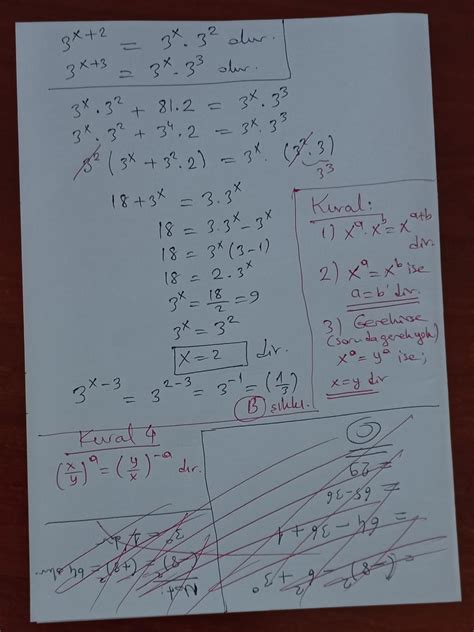 3^(x+2) = 3^x . 3^2 olur.
3^(x+3) = 3^x . 3^3 olur.
3^x . 3^2 + 81.2 = 3^x . 3^3
3^x . 3^2 + 3^4 . 2 = 3^x . 3^3
3^2 (3^x + 3^2 . 2) = 3^x . (3^2 . 3)
3^3
18 + 3^x = 3 . 3^x
18 = 3.3^x - 3^x
18 = 3^x (3-1)
18 = 2 . 3^x
3^x = 18/2 = 9
3^x = 3^2
x = 2 dir.
3^(x-3) = 3^(2-3) = 3^-1 = (1/3)
B şıkkı.
Kural:
1) x^a . x^b = x^(a+b)
dir.
2) x^a = x^b ise
a = b' dir.
3) Gerekirse
(soruda gerek yok)
x^a = y^a ise;
x = y dir
Kural 4
(x/y)^a = (y/x)^-a dır.
Not:
(-8)^2 = (+8)^2 = 64 olur
3^0 = 1 dir
= (-8)^2 - 6^2 + 3^0
= 64 - 36 + 1
= 65-36
= 29